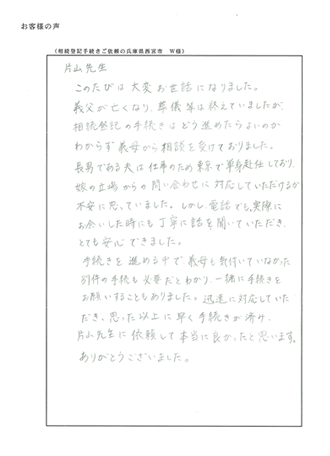 お客様の声
(相続登記手続きご依頼の兵庫県西宮市 W様)
片山先生
このたびは大変お世話になりました。
義父が亡くなり、葬儀等は終えていましたが、
相続登記の手続きはどう進めたらよいのか
わからず義母から相談を受けておりました。
長男である夫は仕事のため東京で単身赴任しており、
嫁の立場からの問い合わせに対応していただけるか
不安に思っていました。しかし、電話でも、実際に
お会いした時にも丁寧に話を聞いていただき、
とても安心できました。
手続きを進める中で義母も気付いていなかった
別件の手続も必要だとわかり、一緒に手続きを
お願いすることもありました。迅速に対応していた
だき、思った以上に早く手続きが済み、
片山先生に依頼して本当に良かったと思います。
ありがとうございました。